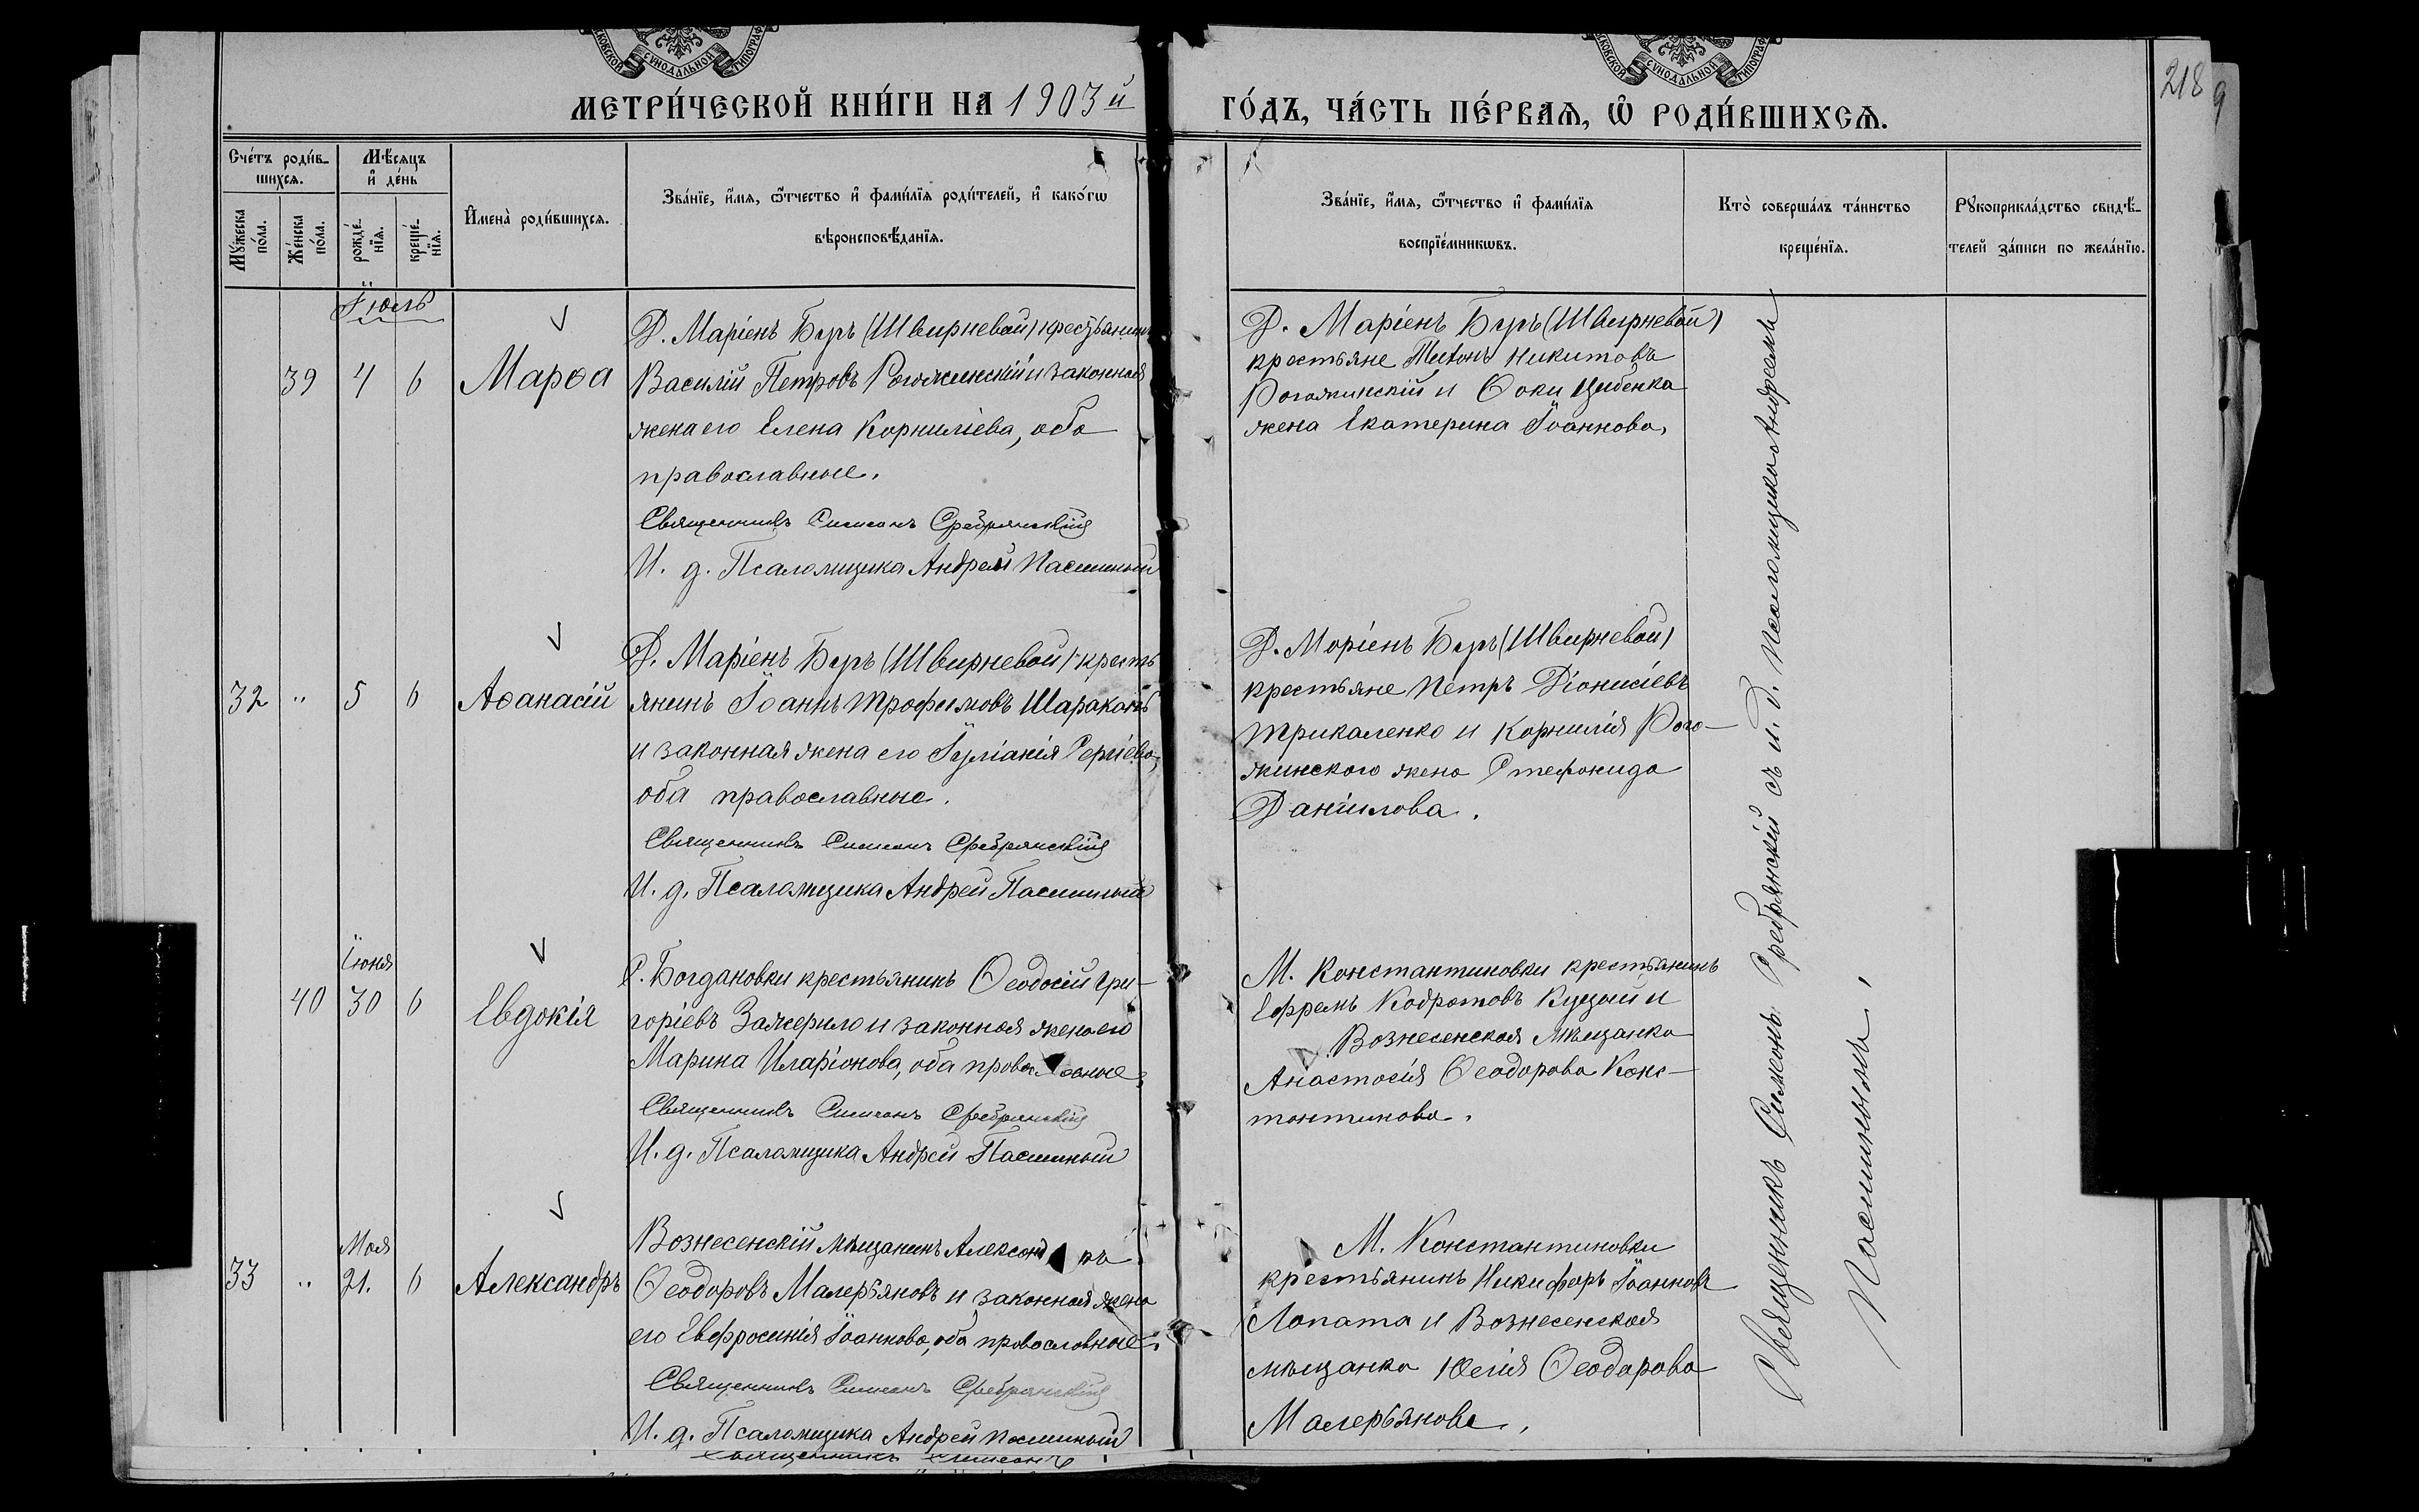 МЕТРИ́ЧЕСКОЙ КНИ́ГИ НА 1903й
ГО́ДЪ, ЧА́СТЬ ПЕ́РВАѦ, Ѽ РОДИ́ВШИХСѦ.
218
9
Сче́тъ роди́в-
шихсѧ.
Мѣ́сяцъ
и҆ де́нь
Мꙋ́жеска
по́ла.
Же́нска
по́ла.
рожде́-
нїѧ.
креще́-
нїѧ.
И҆мена̀ роди́вшихсѧ.
Зва́нїе, и҆́мѧ, ѻ҆́тчество и҆ фами́лїѧ роди́телей, и҆ како́гѡ
вѣроисповѣ́данїѧ.
Зва́нїе, и҆́мѧ, ѻ҆́тчество и҆ фами́лїѧ
воспрїе́мникѡвъ.
Кто̀ соверша́лъ та́инство
креще́нїѧ.
Рꙋкоприкла́дство свидѣ́-
телей за́писи по жела́нїю.
Іюль
39 4 6 Марѳа
Д. Маріенъ Буръ (Швирневой) крестьянинъ
Василій Петровъ Рогожинскій и законная
жена его Елена Корниліева, оба
православные.
Священникъ Симеонъ Сребрянскій
И. д. Псаломщика Андрей Пасишный
Д. Маріенъ Буръ (Швирневой)
крестьяне Титъ Никитовъ
Рогожинскій и Ѳоки Цибенка
жена Екатерина Іоаннова.
32 " 5 6 Аѳанасій
Д. Маріенъ Буръ (Швирневой) кресть
янинъ Іоаннъ Трофимовъ
и законная жена его Іуліанія Сергіева,
оба православные.
Священникъ Симеонъ Сребрянскій
И. д. Псаломщика Андрей Пасишный
Д. Маріенъ Буръ (Швирневой)
крестьяне Петръ Діонисіевъ
Трикаленко и Корнилія Рого-
жинского жена Стефанида
Даніилова.
Іюня
40 30 6 Евдокія
С. Богдановки крестьянинъ Ѳеодосій Гри-
горіевъ Зажерило и законная жена его
Марина Иларіонова, оба православные.
Священникъ Симеонъ Сребрянскій
И. д. Псаломщика Андрей Пасишный
М. Константиновки крестьянинъ
Ефремъ Кодратовъ Куцый и
Вознесенская мѣщанка
Анастасія Ѳеодорова Конс-
тантинова.
Мая
33 " 21. 6 Александръ
Вознесенскій мѣщанинъ Александръ
Ѳеодоровъ Малерьяновъ и законная жена
его Евфросинія Іоаннова, оба православные.
Священникъ Симеонъ Сребрянскій
И. д. Псаломщика Андрей Пасишный
Священникъ Симеонъ
М. Константиновки
крестьянинъ Никифоръ Іоанновъ
Лопата и Вознесенская
мѣщанка Юлія Ѳеодорова
Малерьянова.
Священникъ Симеонъ Сребрянскій съ и. д. Псаломщика Андреемъ
Пасишнымъ.